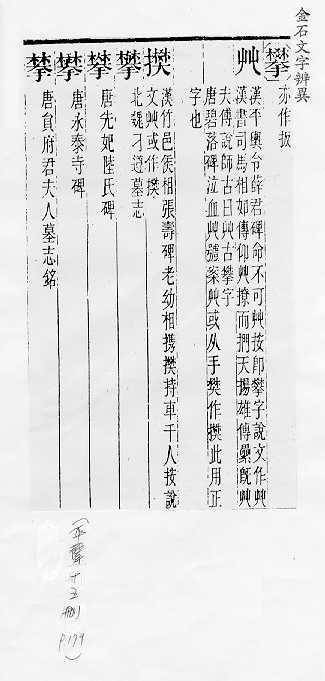 金石文字辨異
攀
亦作扳
𠬜
漢平輿令薛君碑命不可𠬜按卽攀字說文作𠬜
漢書司馬相如傳仰𠬜橑而捫天揚雄傳纍旣𠬜
夫傅說師古曰𠬜古攀字
唐碧落碑泣血𠬜號案𠬜或从手樊作㩯此用正
字也
㩯
漢竹邑侯相張壽碑老幼相攜㩯持車千人按說
文𠬜或作㩯
攀
北魏刁遵墓志
攀
唐先妃陸氏碑
攀
唐永泰寺碑
唐貟府君夫人墓志銘
十五冊
P.179